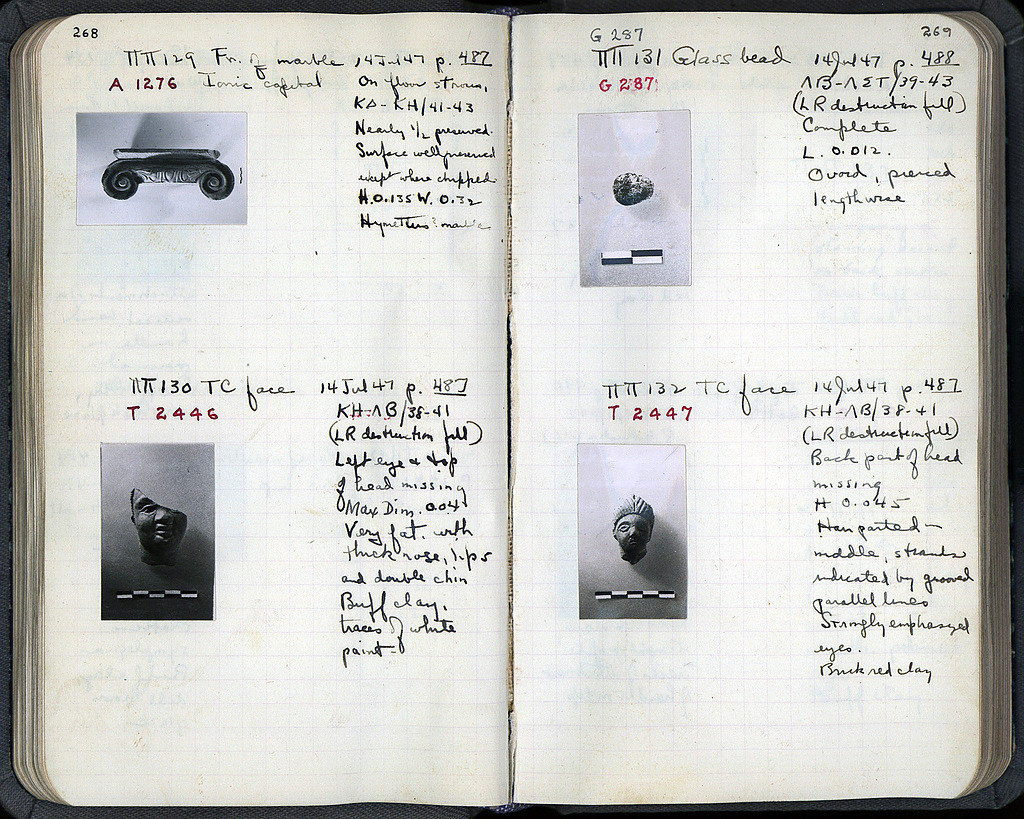 268
ΠΠ 129 Fr. of marble 14 Jul 47 p. 487
A 1276 Ionic capital On floor strosis,
ΚΔ-ΚΗ/41-43
Nearly 1/2 preserved.
Surface well preserved
except where chipped
H. 0.135 W. 0.32
Hymettus? marble
ΠΠ 130 TC face 14 Jul 47 p. 487
T 2446 ΚΗ-ΛΒ/38-41
(LR destruction fill)
Left eye & top
of head missing
Max Dim. 0.047
Very fat, with
thick nose, lips
and double chin
Buff clay,
traces of white
paint-
G 287 269
ΠΠ 131 Glass bead 14 Jul 47 p. 488
G 287 ΛΒ-ΛΣΤ/39-43
(LR destruction fill)
Complete
L. 0.012.
Ovoid, pierced
lengthwise
ΠΠ 132 TC face 14 Jul 47 p. 487
T 2447 ΚΗ-ΛΒ/38-41
(LR destruction fill)
Back part of head
missing
H 0.045
Hair parted in
middle, strands
indicated by grooved
parallel lines
Strongly emphasized
eyes.
Brick red clay